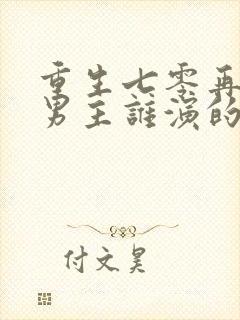 重生七零再
男主誰演的
付文昊